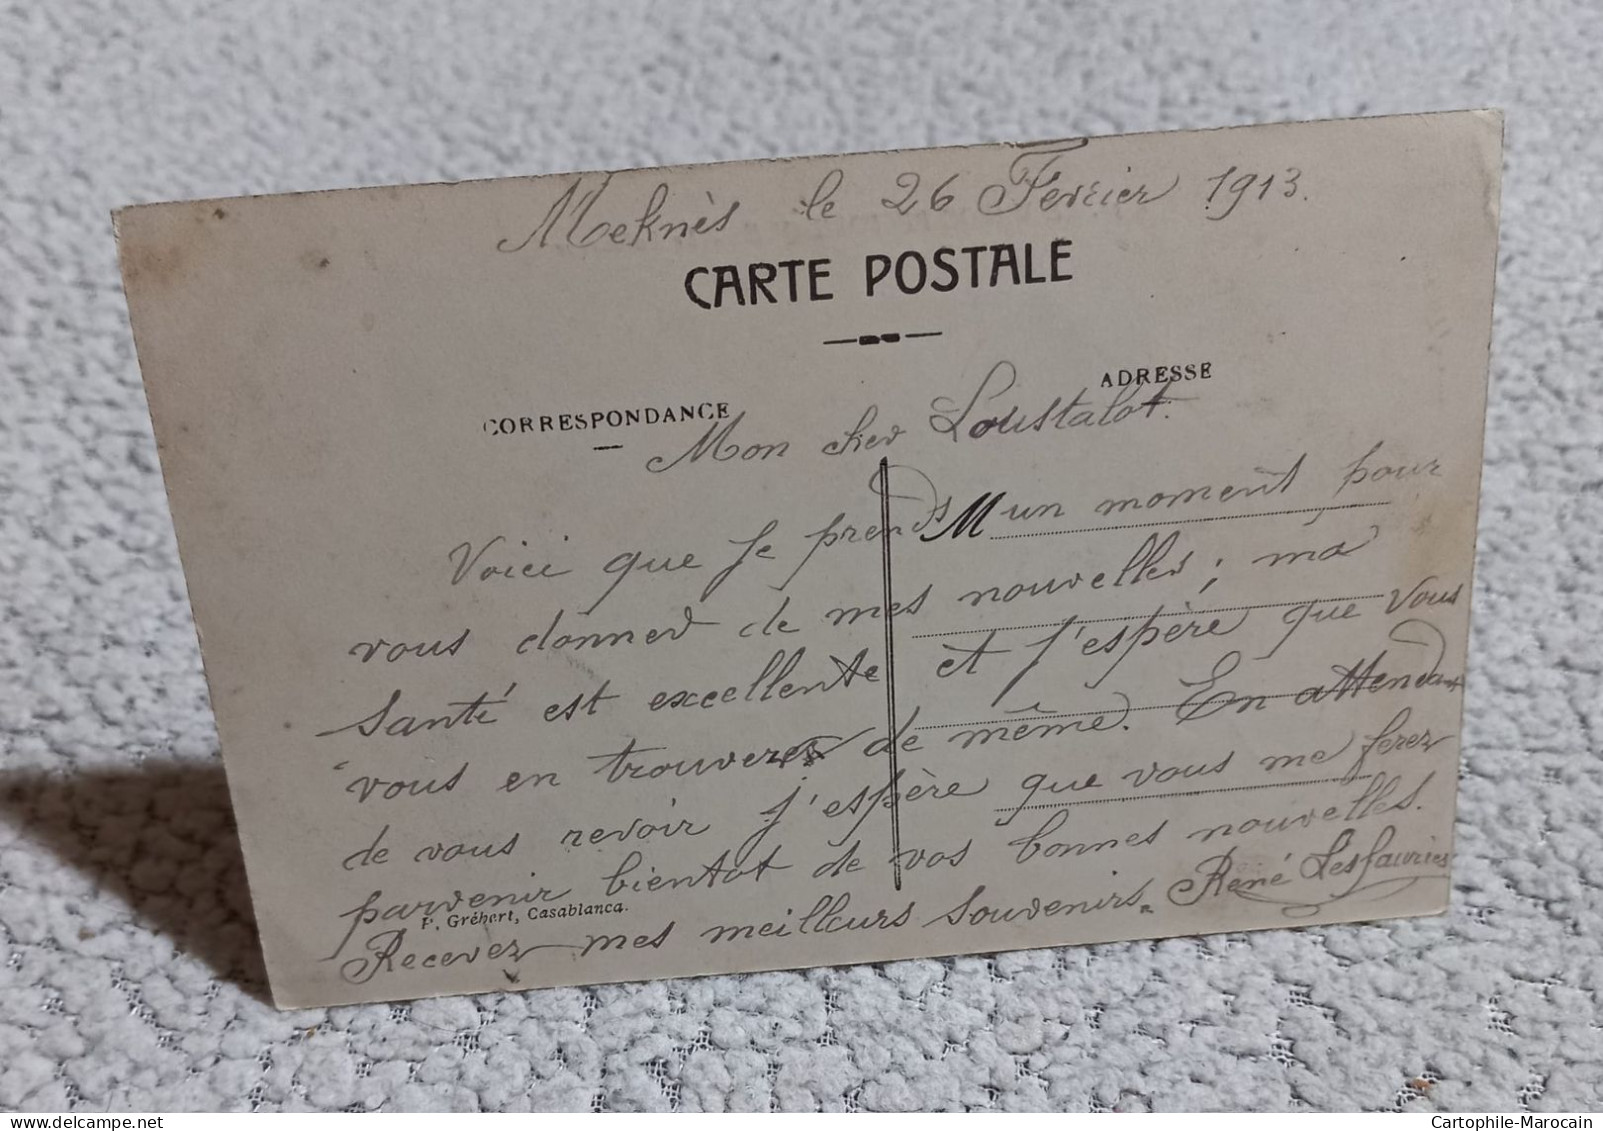 Meknès le 26 Fevrier 1913.
CARTE POSTALE
CORRESPONDANCE
ADRESSE
Mon cher Loustalot.
M
Voici que je prends un moment pour
vous donner de mes nouvelles ; ma
santé est excellente et j'espère que vous
vous en trouverez de même. En attendant
de vous revoir j'espère que vous me ferez
parvenir bientot de vos bonnes nouvelles.
Recevez mes meilleurs souvenirs. René Lesfauries
P. Grébert, Casablanca.
Cartophile-Marocain